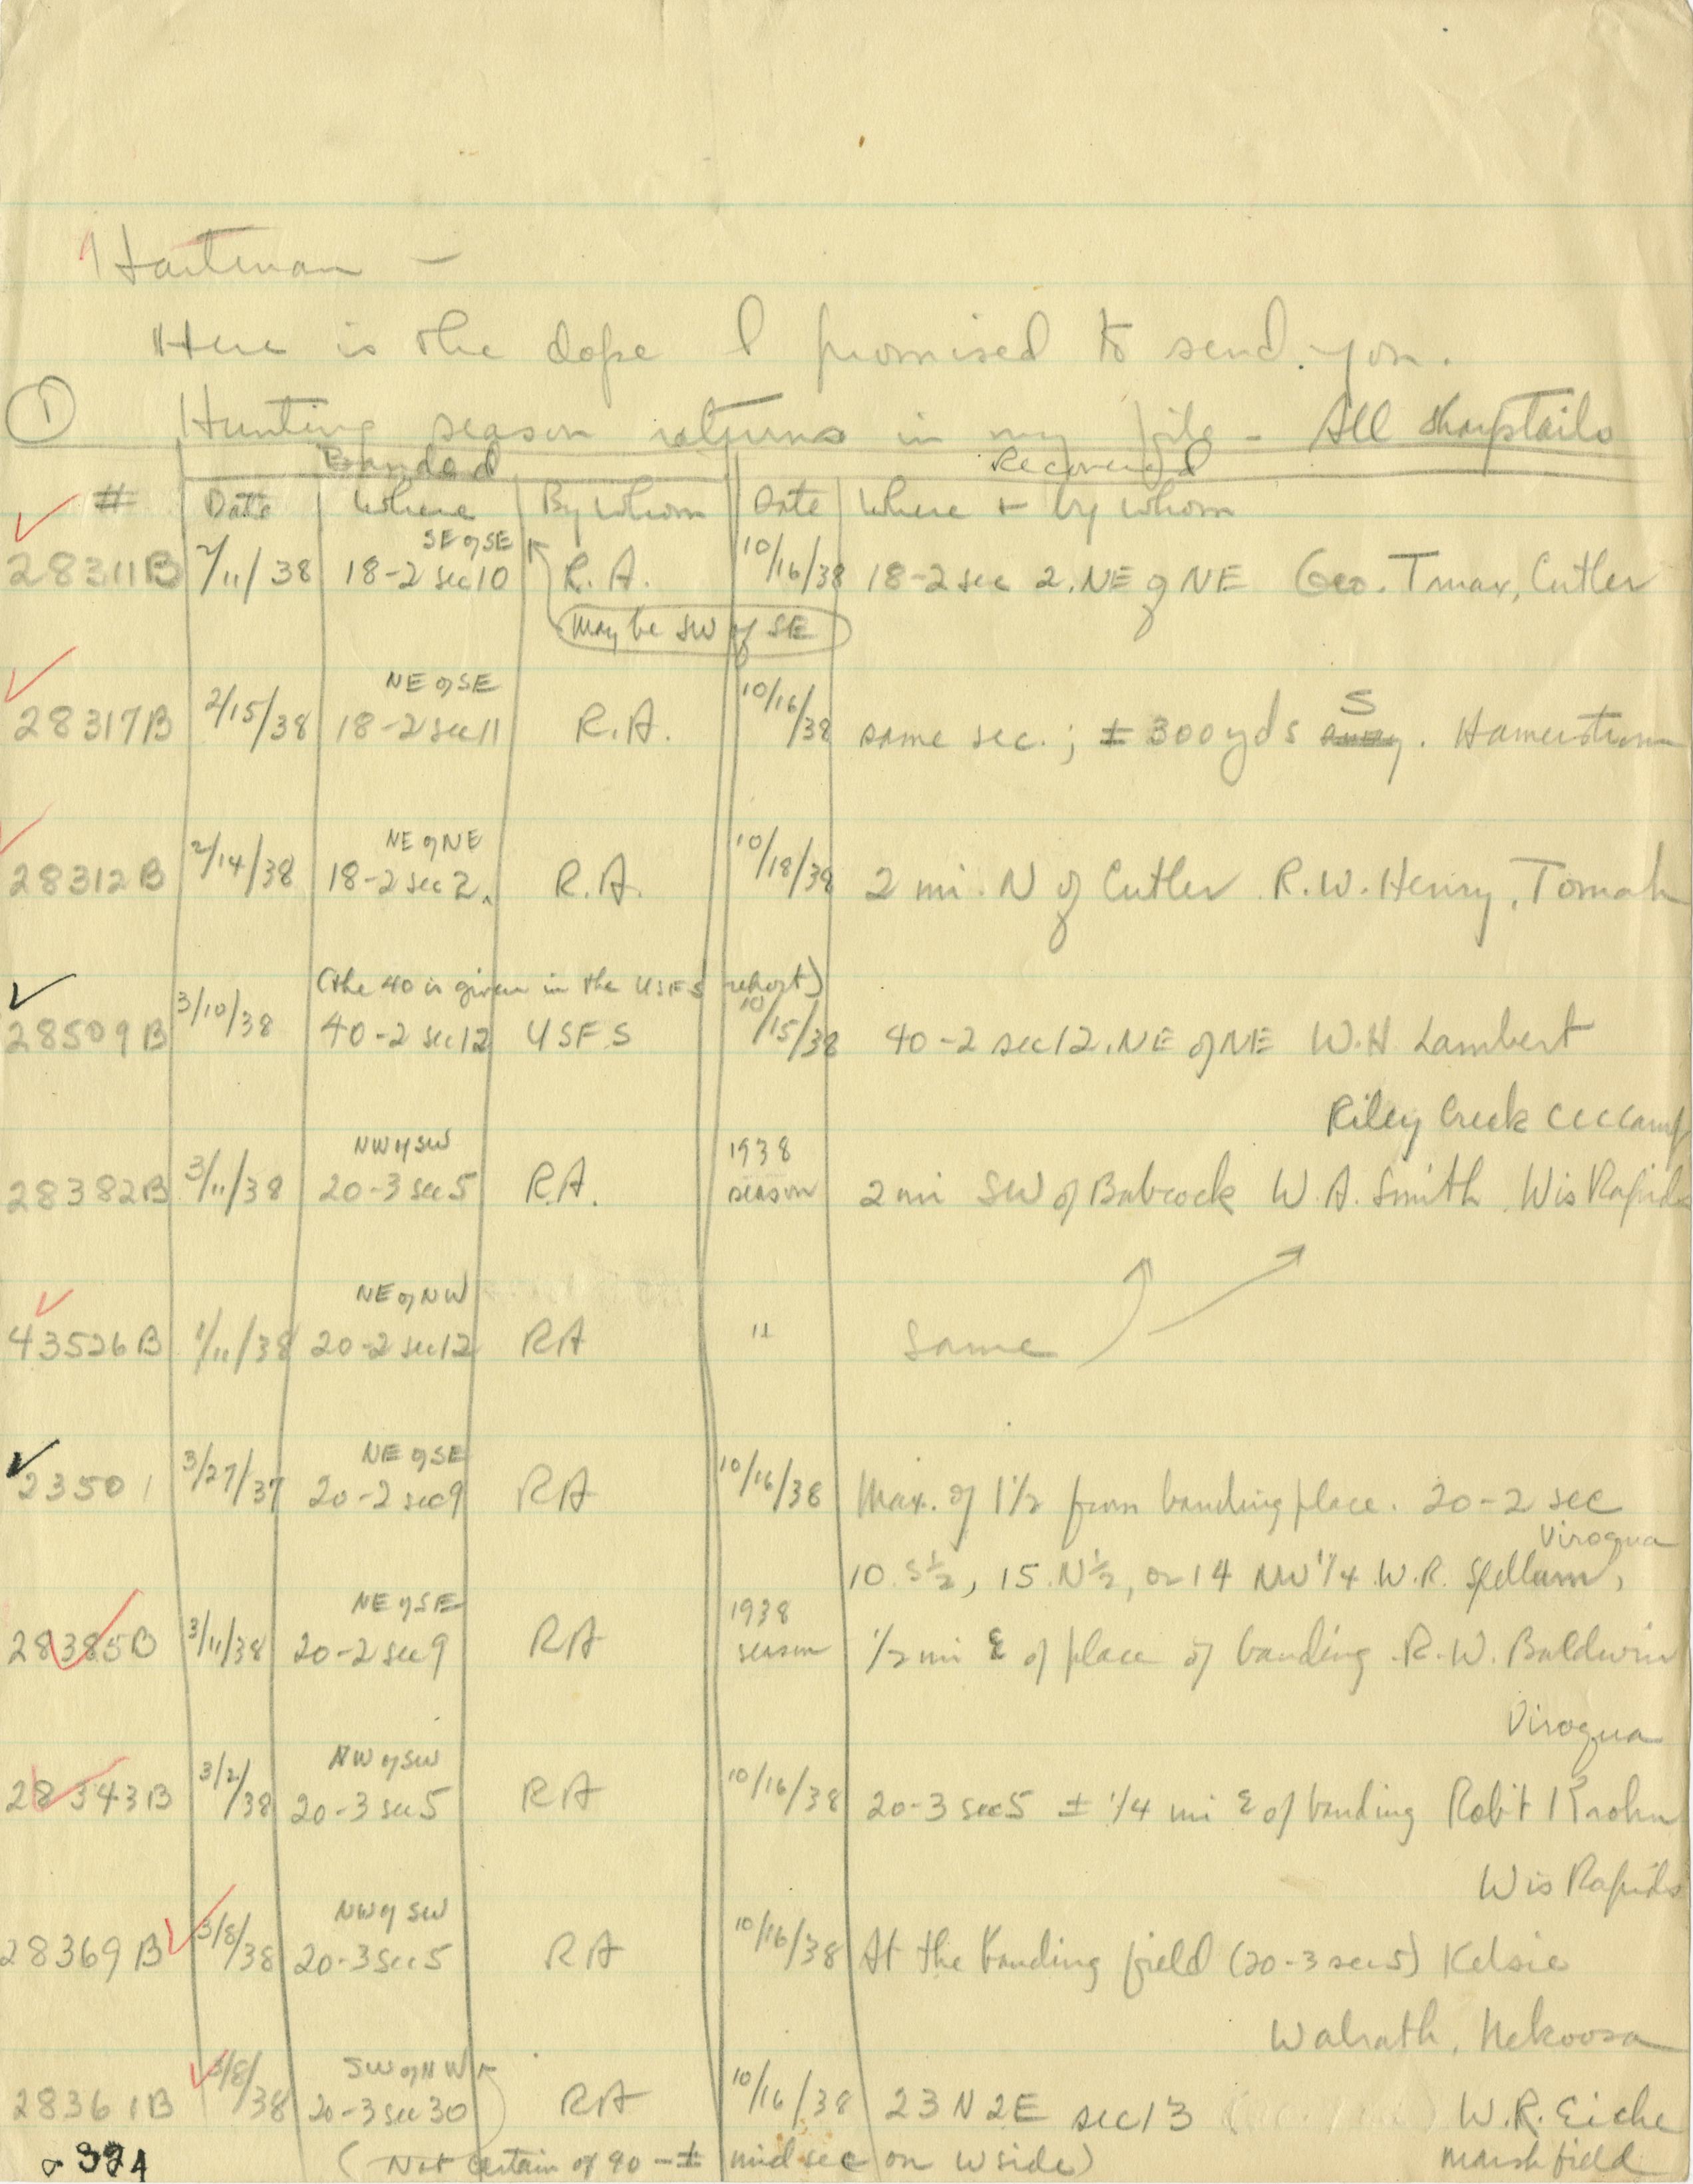 Hartman —
Here is the dope I promised to send you.
① Hunting season returns in my file – All Sharptails
Banded Recovered
# Date Where By Whom Date Where + by whom
SE of SE
28311B 2/11/38 18-2 sec 10 R.A. 10/16/38 18-2 sec 2. NE of NE Geo. Cutler
May be SW of SE
NE of SE S
28317B 2/15/38 18-2 sec 11 R.A. 10/16/38 same sec.; ± 300 yds away. Hamerstrom
NE of NE
28312B 2/14/38 18-2 sec 2. R.A. 10/18/38 2 mi. N of Cutler R.W. Henry, Tomah
(the 40 is given in the USFS report)
28509B 3/10/38 40-2 sec 12 USFS 10/15/38 40-2 sec 12. NE of NE W.H. Lambert
Riley Creek CCC camp
NW of SW 1938
28382B 3/11/38 20-3 sec 5 R.A. season 2 mi SW of Babcock W. A. Smith, Wis Rapids
NE of NW
43526B 1/11/38 20-2 sec 12 RA " Same
NE of SE
23501 3/27/37 20-2 sec 9 RA 10/16/38 Max. of 1½ from banding place. 20-2 sec
Viroqua
10 S½, 15 N½, or 14 NW¼ W.R. Spellum,
NE of SE 1938
28385B 3/11/38 20-2 sec 9 RA season ½ mi E of place of banding R.W. Baldwin
Viroqua
NW of SW
28343B 3/2/38 20-3 sec 5 RA 10/16/38 20-3 sec 5 ± ¼ mi E of banding Rob't Krohn
Wis Rapids
NW of SW
28369B 3/8/38 20-3 sec 5 RA 10/16/38 At the banding field (20-3 sec 5) Kelsie
Walrath, Nekoosa
SW of NW
28361B 3/8/38 20-3 sec 30 RA 10/16/38 23N 2E sec 13 W.R. Eiche
324 (Not certain of 40 – ± mid sec on W side) Marshfield